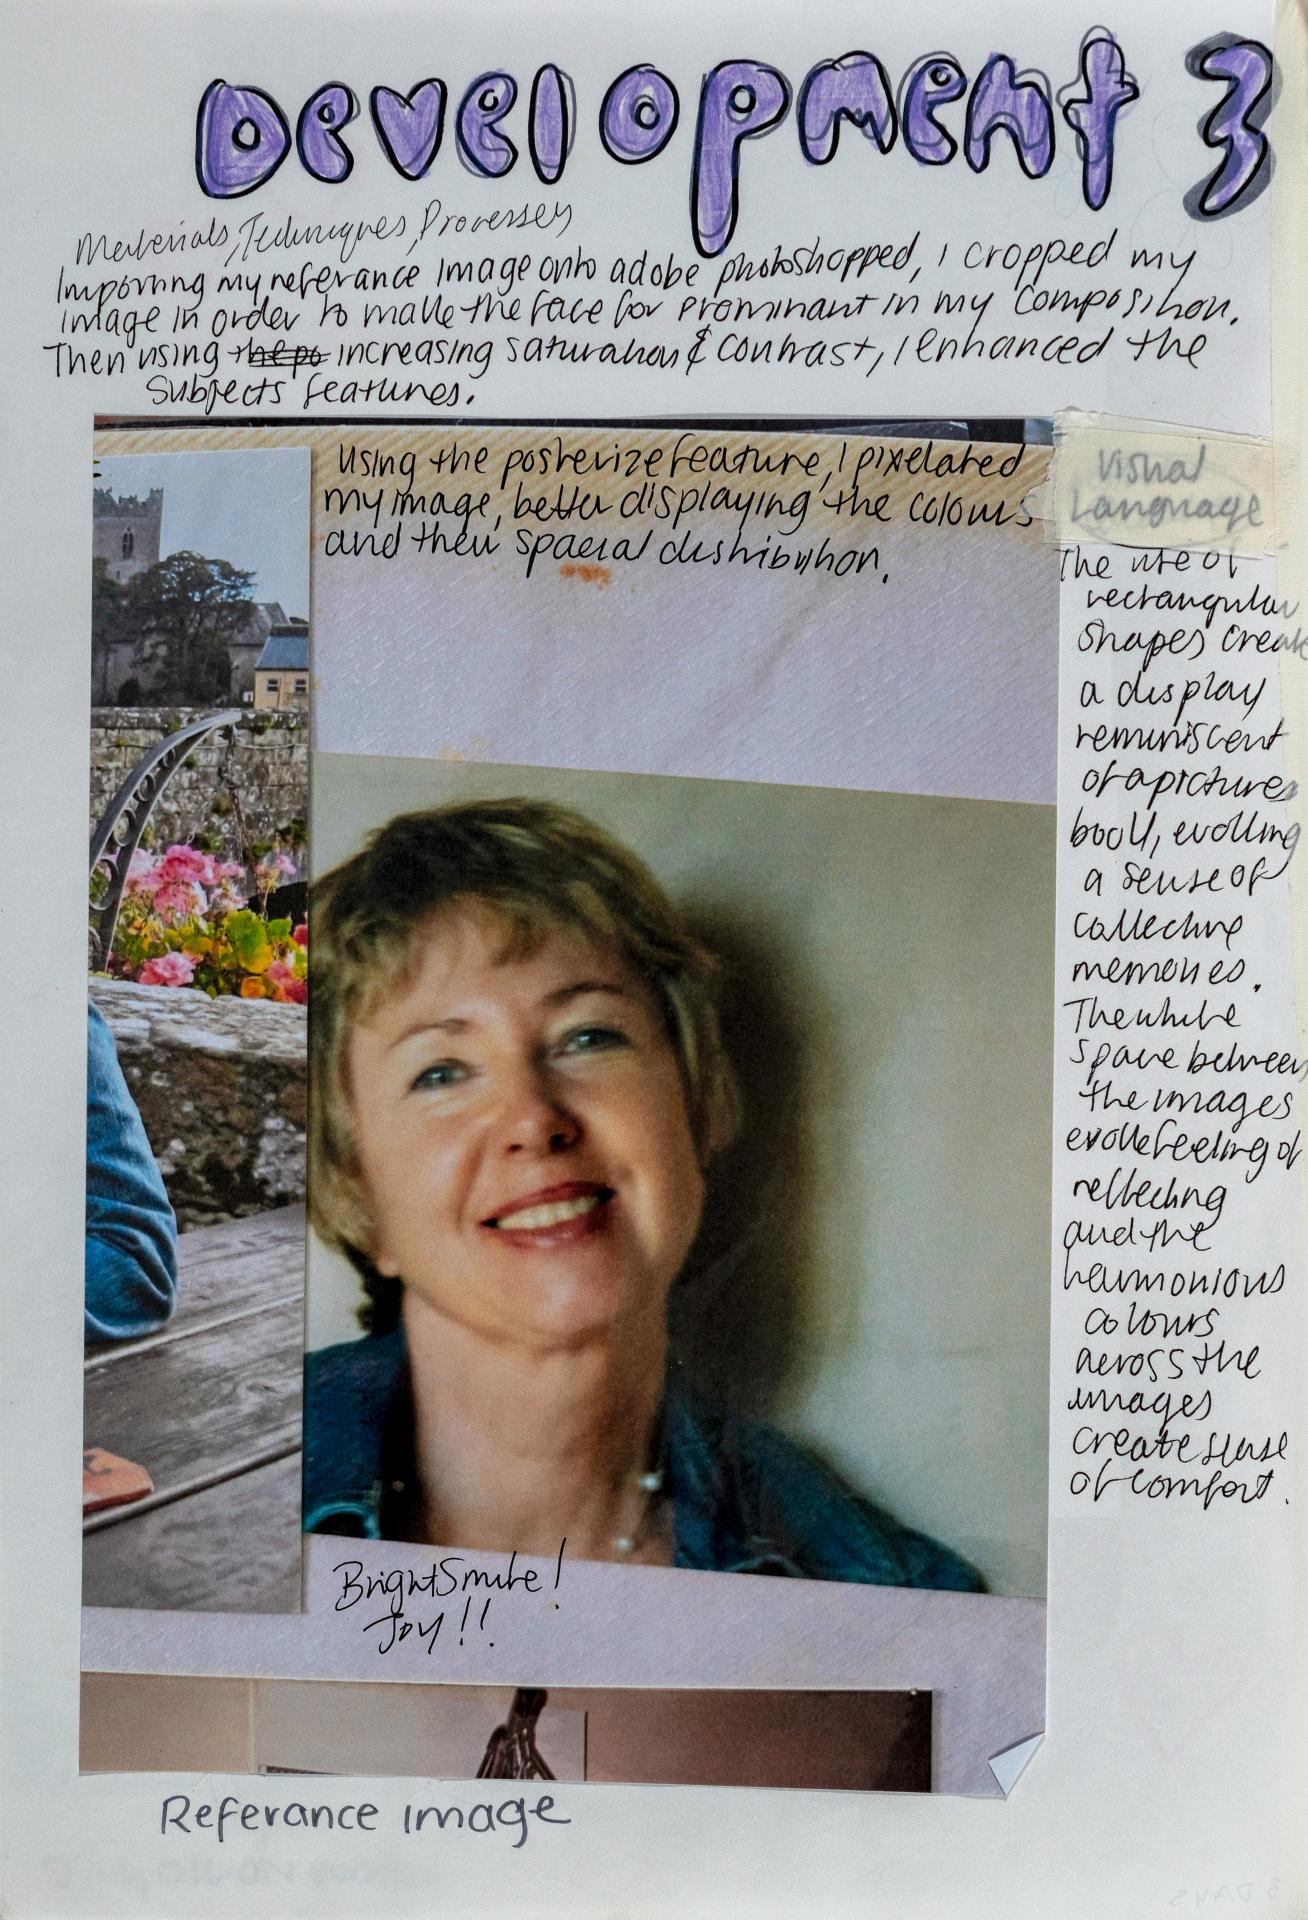 Development 3
Materials, Techniques, Processes
Importing my referance image onto adobe photoshopped, I cropped my
image in order to make the face for prominant in my composition.
Then using the po increasing saturation & contrast, I enhanced the
subjects features.
Using the posterize feature, I pixelated
my image, better displaying the colours
and their spacial distribution.
Visual
Language
The use of
rectangular
shapes create
a display
reminiscent
of a picture
book, evoking
a sense of
collective
memories.
The white
space between
the images
evoke feeling of
reflecting
and the
harmonious
colours
across the
images
create sense
of comfort.
Bright Smile!
Joy!!
Referance image
3 DAYS